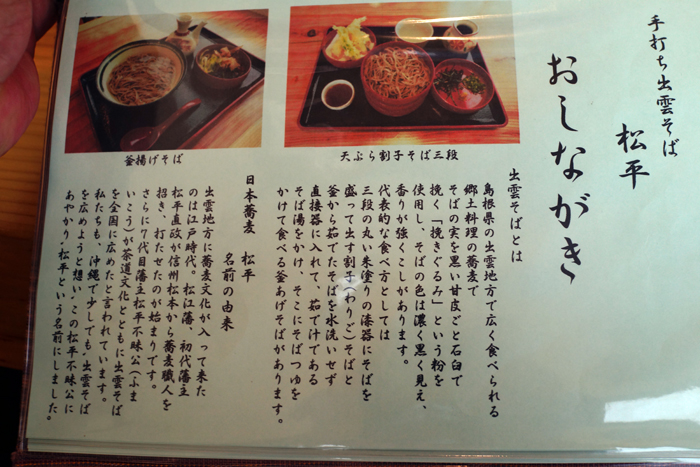 手打ち出雲そば
松平
おしながき
出雲そばとは
島根県の出雲地方で広く食べられる
郷土料理の蕎麦で
そばの実を黒い甘皮ごと石臼で
挽く「挽きぐるみ」という粉を
使用し、そばの色は濃く黒く見え、
香りが強くこしがあります。
代表的な食べ方としては
三段の丸い朱塗りの漆器にそばを
盛って出す割子(わりご)そばと
釜から茹でたそばを水洗いせず
直接器に入れて、茹で汁である
そば湯をかけ、そこにそばつゆを
かけて食べる釜あげそばがあります。
天ぷら割子そば三段
釜揚げそば
日本蕎麦 松平
名前の由来
出雲地方に蕎麦文化が入って来た
のは江戸時代。松江藩、初代藩主
松平直政が信州松本から蕎麦職人を
招き、打たせたのが始まりです。
さらに7代目藩主松平不昧公(ふま
いこう)が茶道文化とともに出雲そば
を全国に広めたと言われています。
私たちも、沖縄で少しでも"出雲そば
を広めようと想い"この松平不昧公に
あやかり"松平という名前にしました。